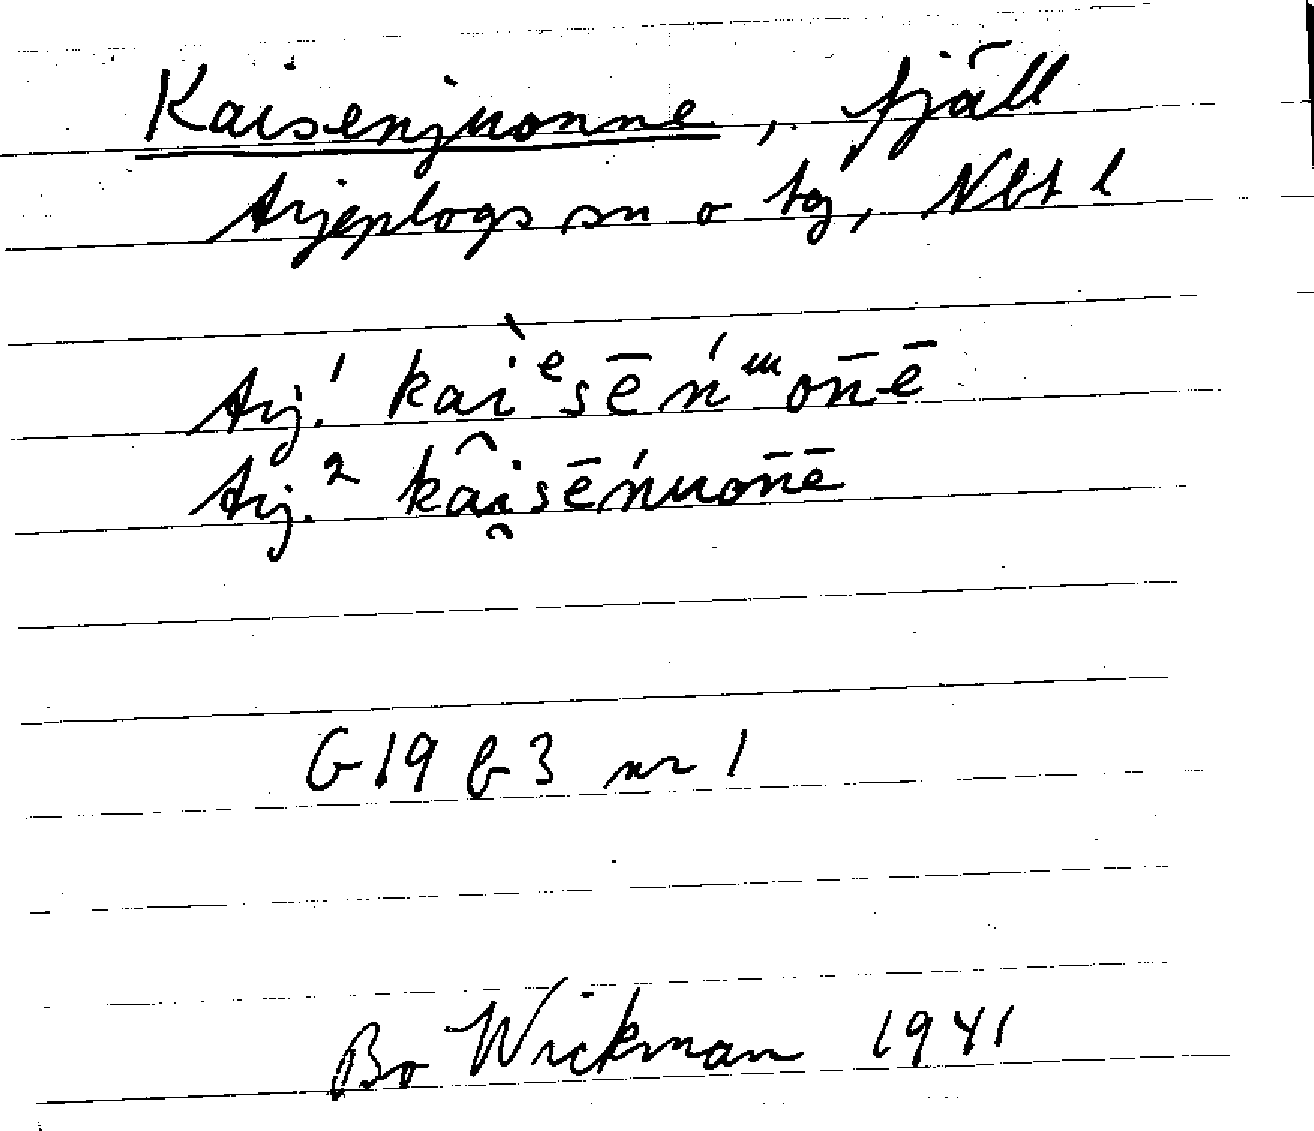 Kaisenjuonne, fjäll
Arjeplogs sn o tg, Nbt l
Arj.¹ kaìᵉsēńᵚon̄ē
Arj.² kâi̯sēńuon̄ē
G19 b3 nr 1
Bo Wickman 1941